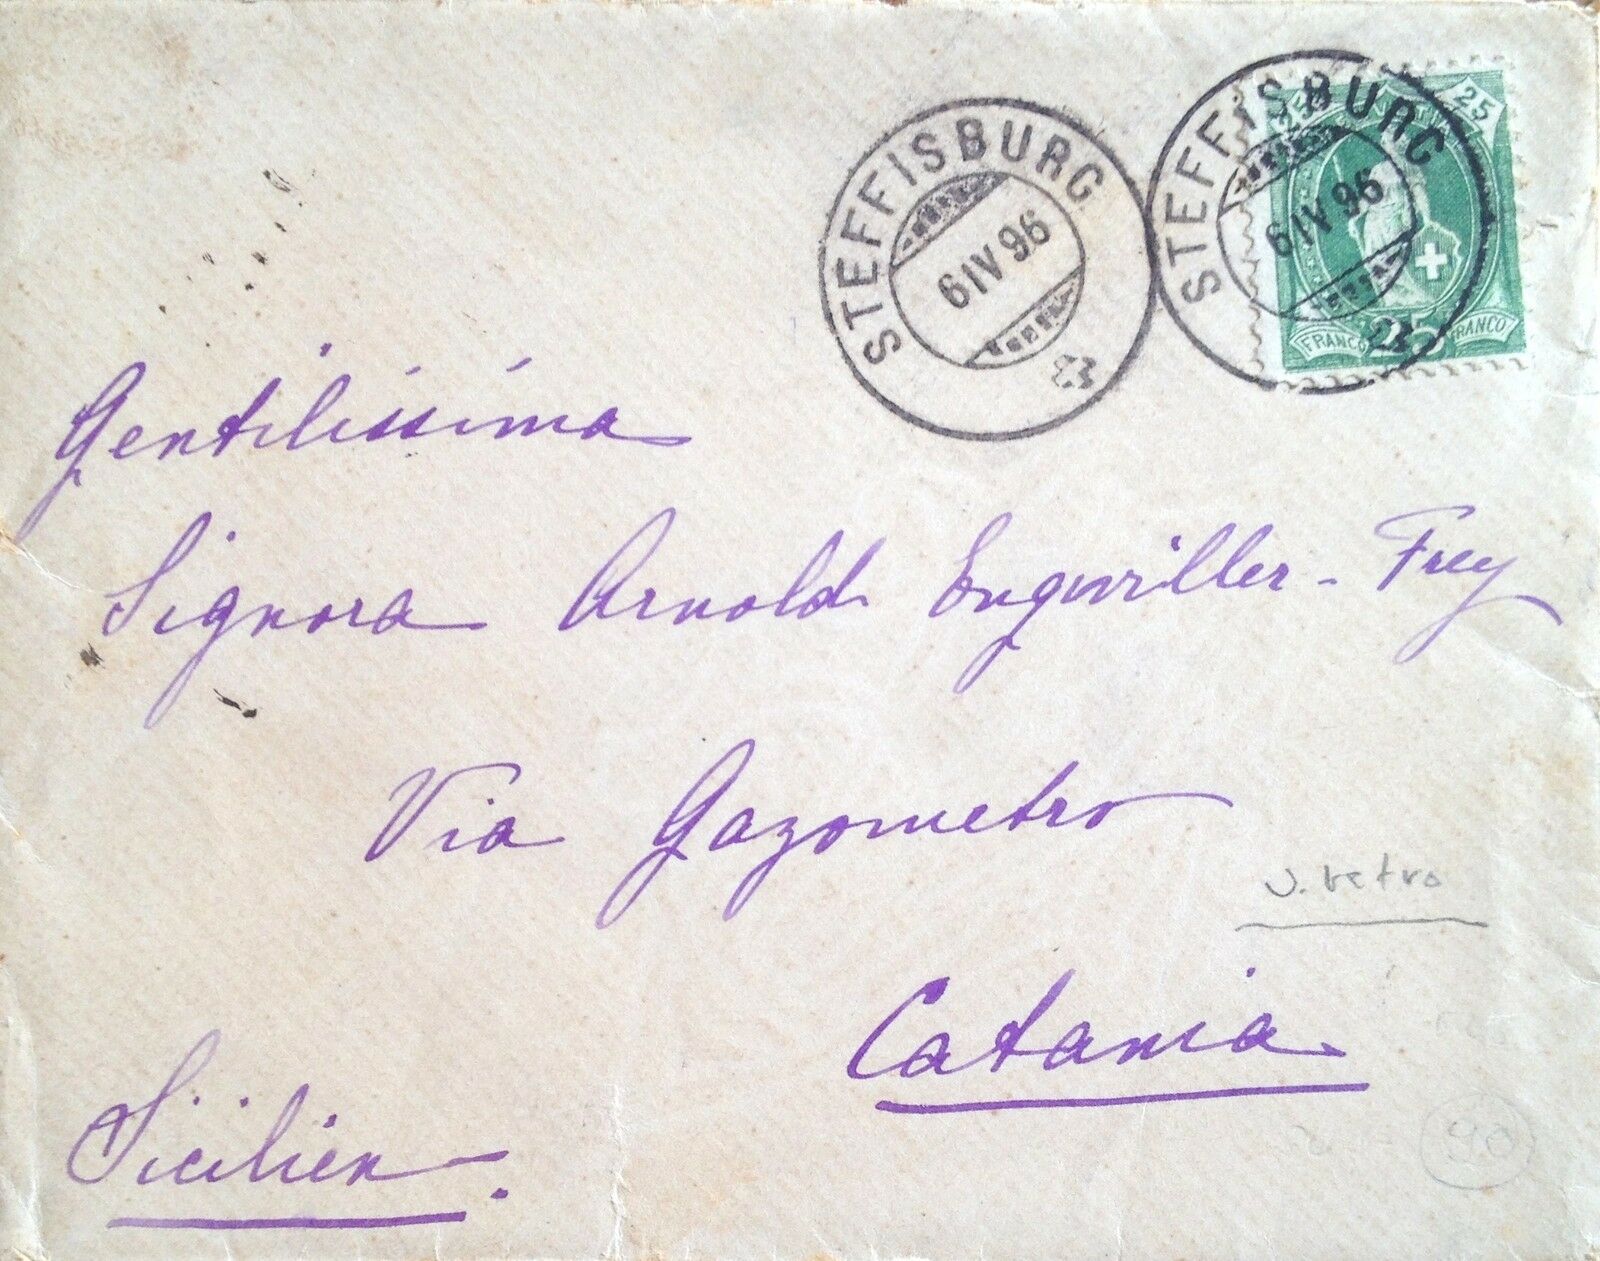 STEFFISBURG
6 IV 96
STEFFISBURG
6 IV 96
25
FRANCO 25 FRANCO
Gentilissima
Signora Arnold Engwiller-Frey
Via Gazometro
v. retro
Catania
Sicilien.
90